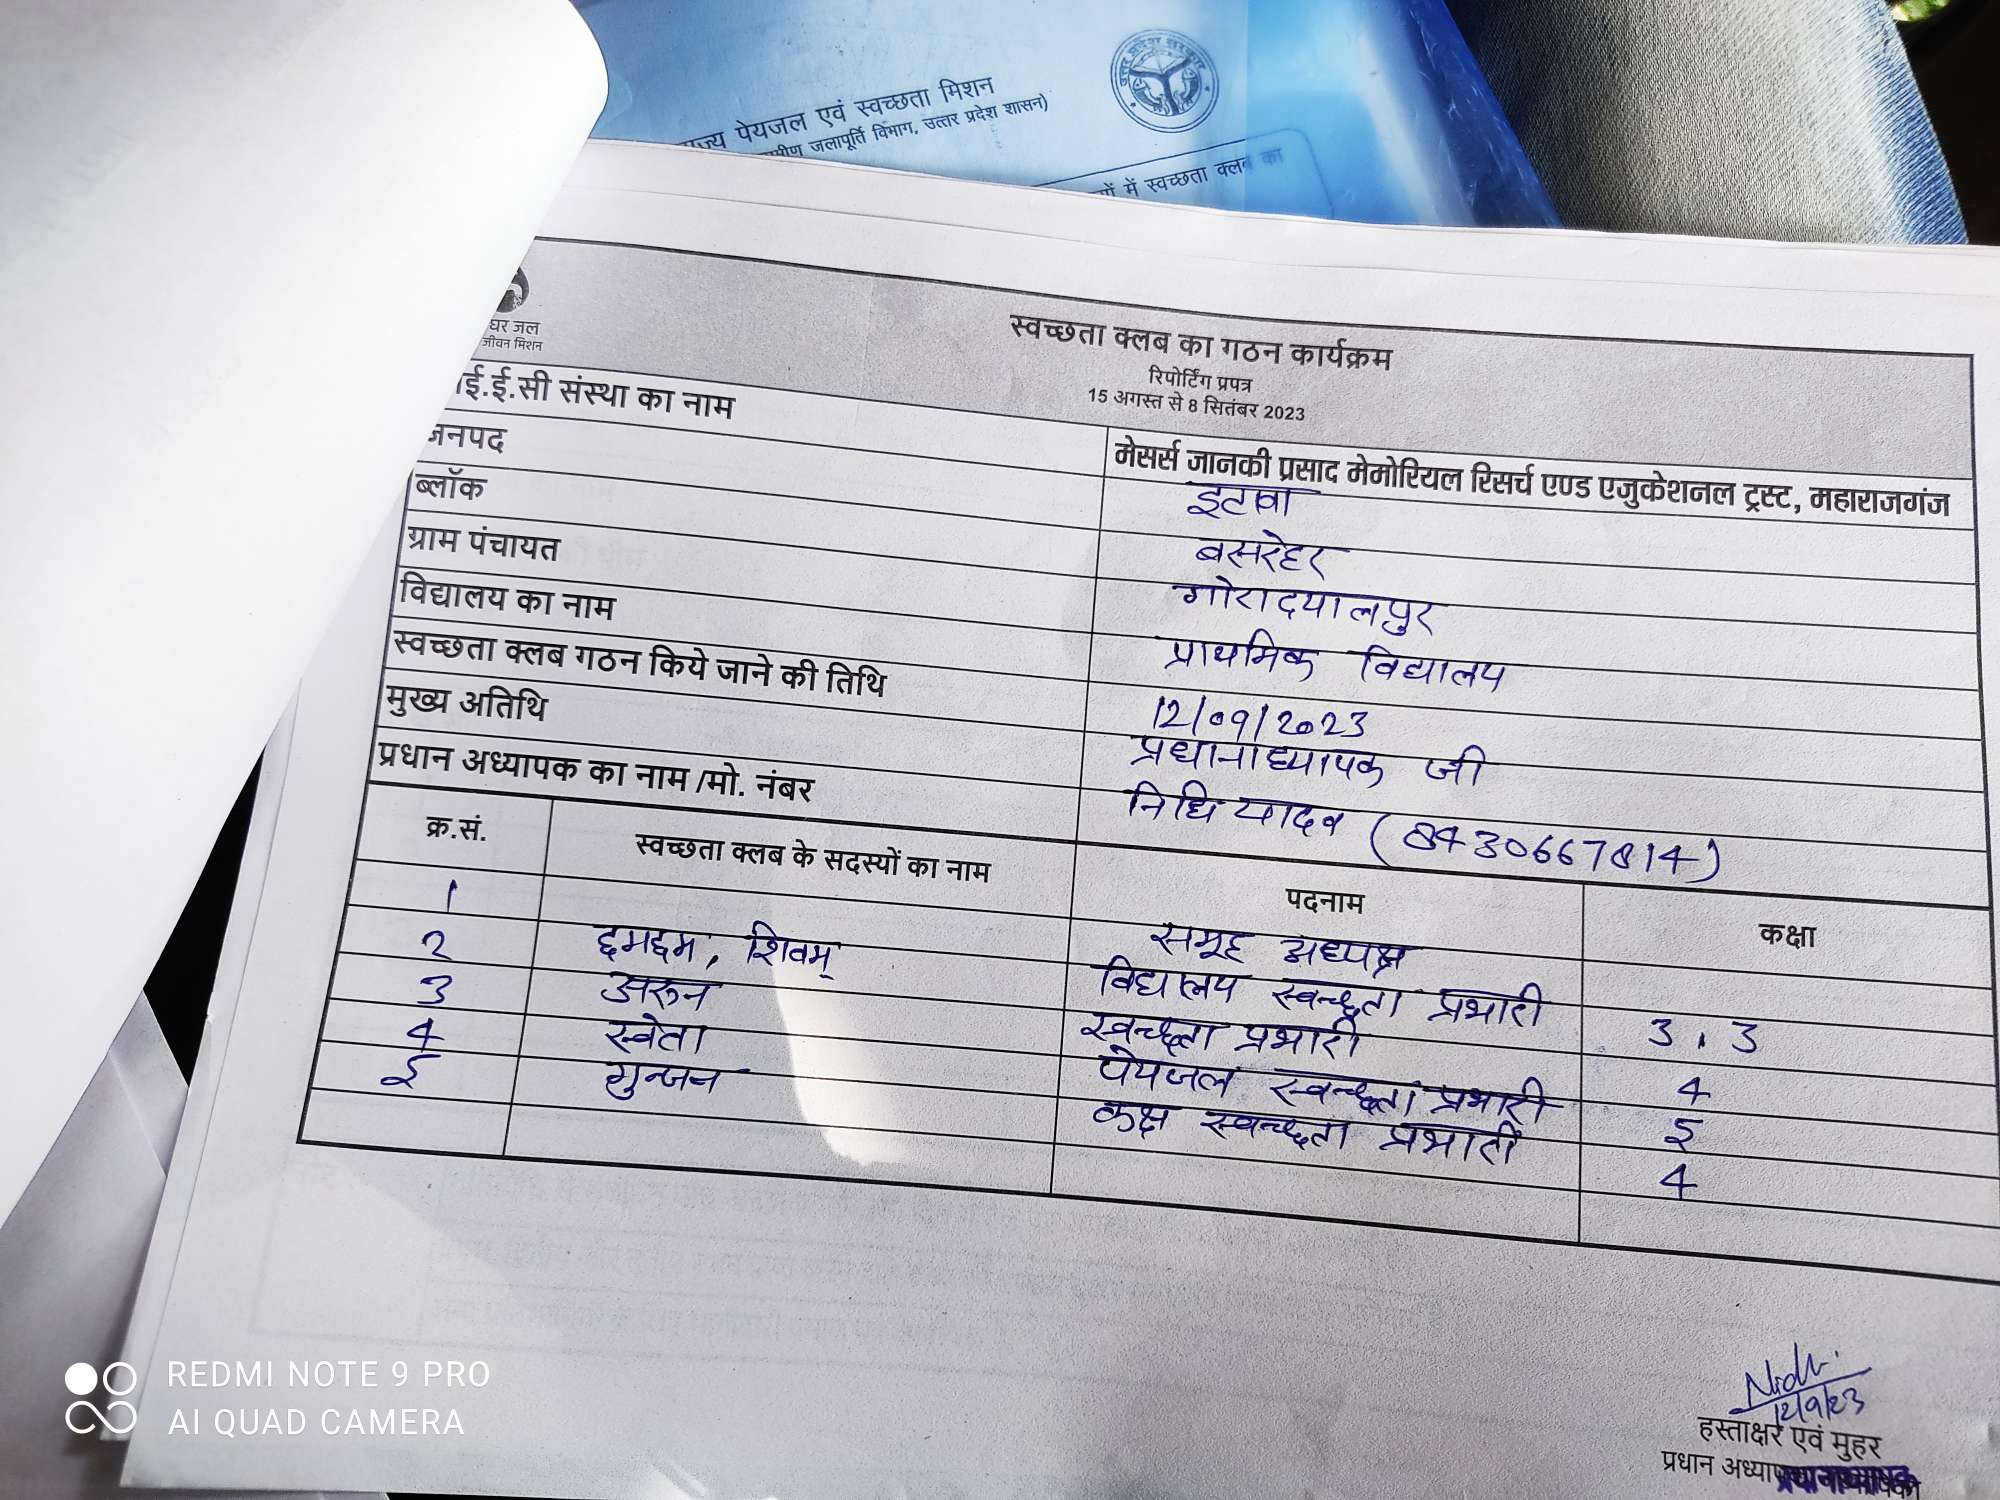 राज्य पेयजल एवं स्वच्छता मिशन
ग्रामीण जलापूर्ति विभाग, उत्तर प्रदेश शासन)
में स्वच्छता क्लब का
घर जल
जीवन मिशन
स्वच्छता क्लब का गठन कार्यक्रम
रिपोर्टिंग प्रपत्र
15 अगस्त से 8 सितंबर 2023
आई.ई.सी संस्था का नाम मेसर्स जानकी प्रसाद मेमोरियल रिसर्च एण्ड एजुकेशनल ट्रस्ट, महाराजगंज
जनपद इटावा
ब्लॉक बसरेहर
ग्राम पंचायत गोरादयालपुर
विद्यालय का नाम प्राथमिक विद्यालय
स्वच्छता क्लब गठन किये जाने की तिथि 12/09/2023
मुख्य अतिथि प्रधानाध्यापक जी
प्रधान अध्यापक का नाम /मो. नंबर निधि यादव (8430667814)
क्र.सं. स्वच्छता क्लब के सदस्यों का नाम पदनाम कक्षा
1 छमछम, शिवम् समूह अध्यक्ष 3, 3
2 अरुन विद्यालय स्वच्छता प्रभारी 4
3 स्वेता स्वच्छता प्रभारी 5
4 गुन्जन पेयजल स्वच्छता प्रभारी 4
5 कक्ष स्वच्छता प्रभारी
Nidhi
12/9/23
हस्ताक्षर एवं मुहर
प्रधान अध्यापक
REDMI NOTE 9 PRO
AI QUAD CAMERA